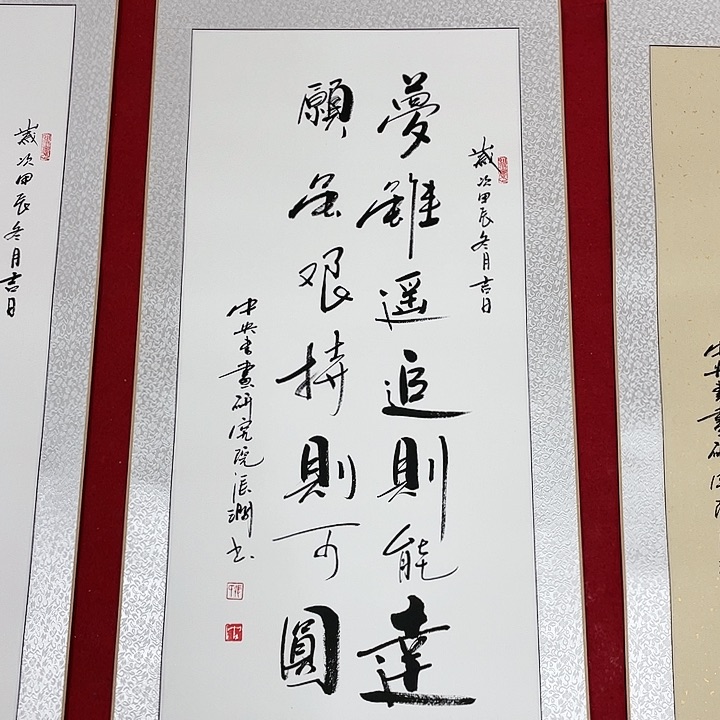 中央書畫研究院
歲次甲辰冬月吉日
夢雖遥追則能達
願虽艰持則可圓
中央書畫研究院張书
歲次甲辰冬月吉日